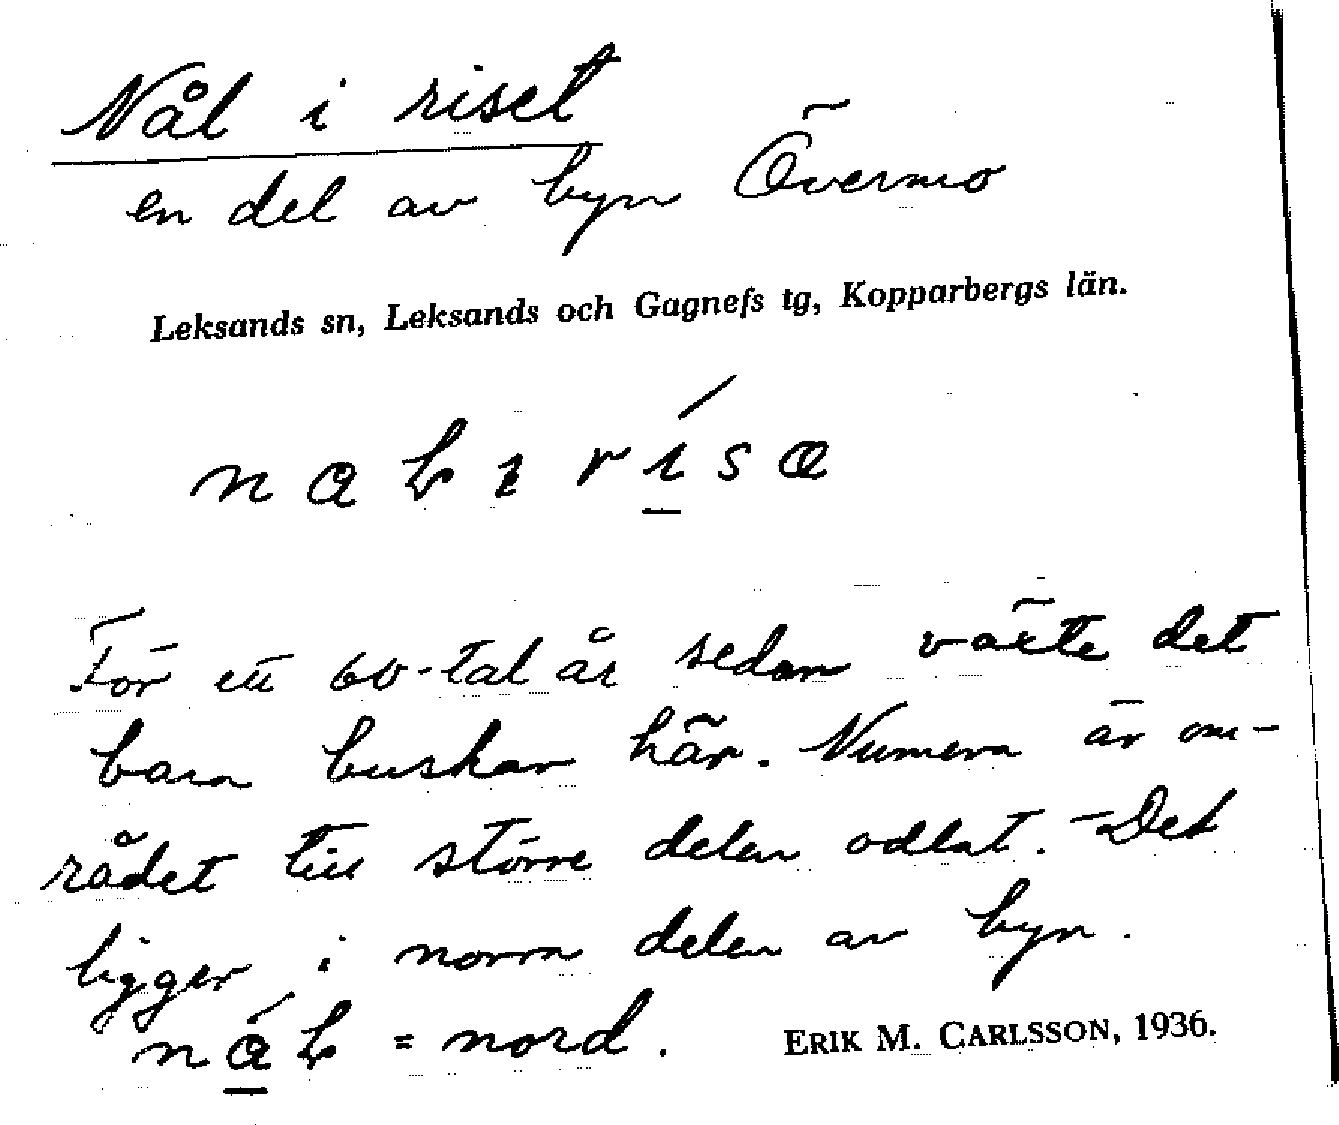 Nål i riset
en del av byn Övermo
Leksands sn, Leksands och Gagnefs tg, Kopparbergs län.
För ett 60-tal år sedan växte det
bara buskar här. Numera är om-
rådet till större delen odlat. - Det
ligger i norra delen av byn.
= nord.
ERIK M. CARLSSON, 1936.